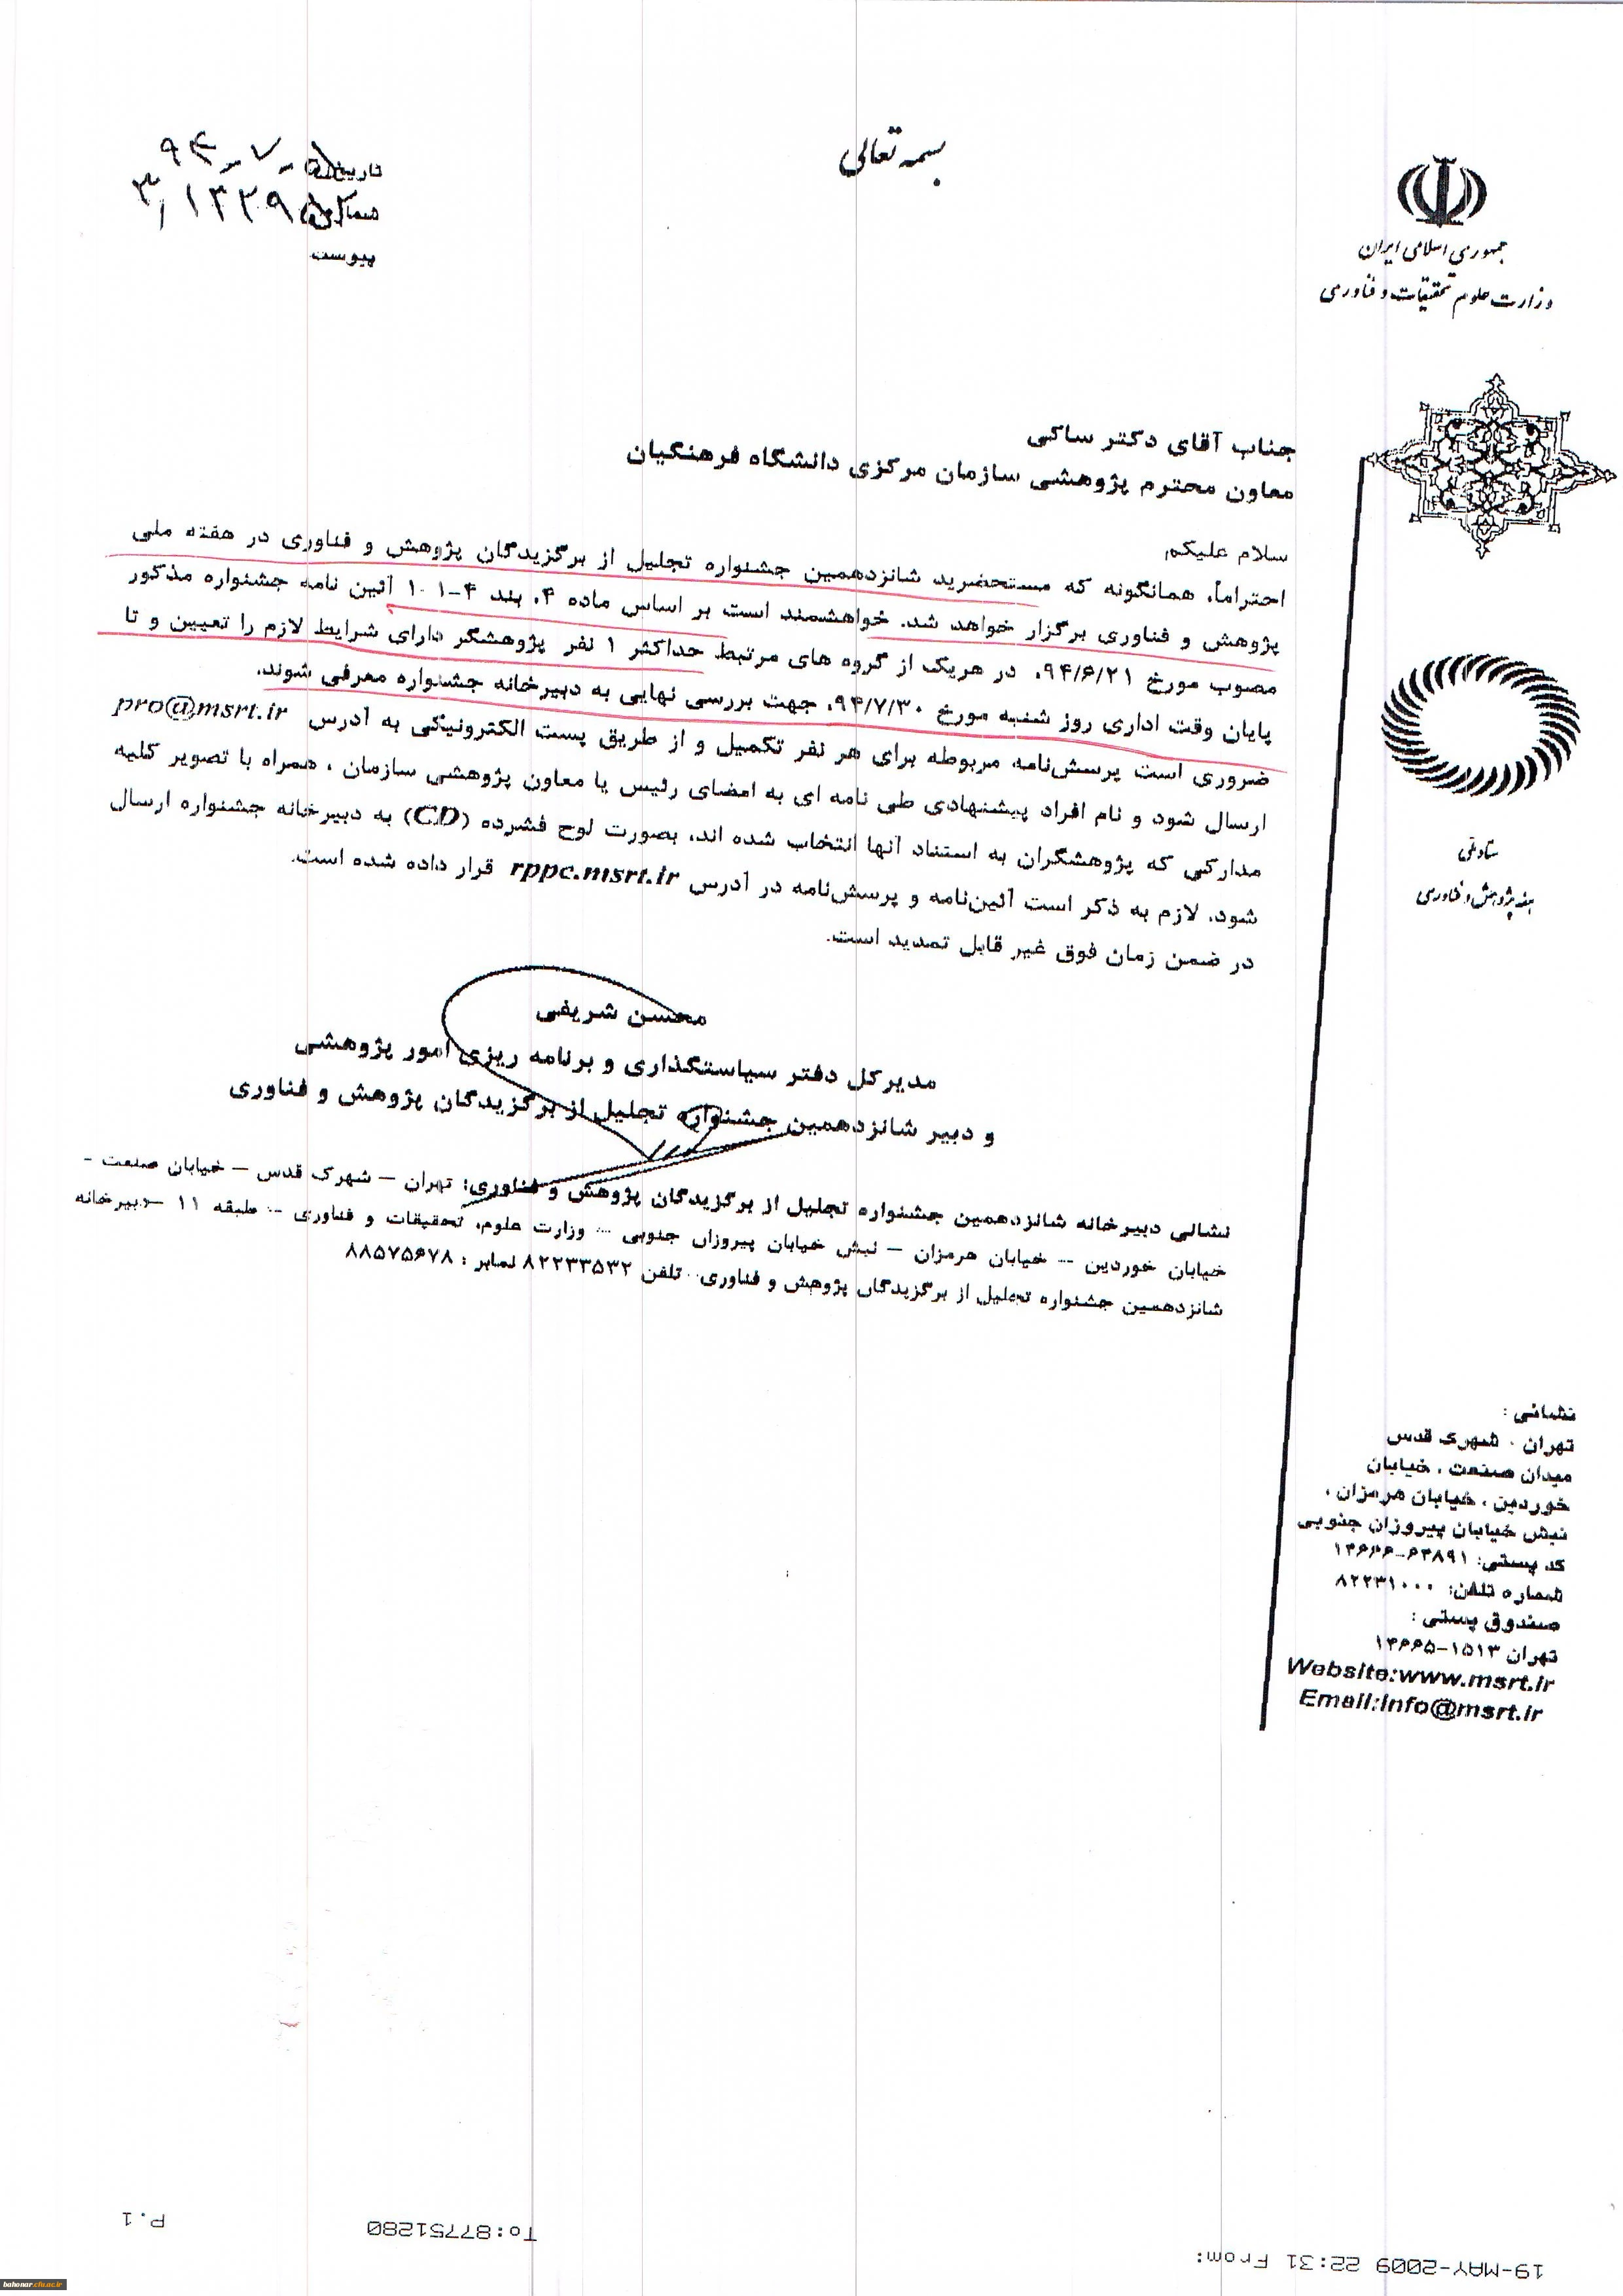 بسمه تعالی
جمهوری اسلامی ایران
وزارت علوم تحقیقات و فناوری
تاریخ
پیوست
جناب آقای دکتر ساکی
معاون محترم پژوهشی سازمان مرکزی دانشگاه فرهنگیان
سلام علیکم
احتراماً، همانگونه که مستحضرید شانزدهمین جشنواره تجلیل از برگزیدگان پژوهش و فناوری در هفته ملی
پژوهش و فناوری برگزار خواهد شد. خواهشمند است بر اساس ماده ۴، بند ۴-۱-۱۰ آئین نامه جشنواره مذکور
مصوب مورخ ۹۴/۶/۲۱، در هریک از گروه های مرتبط حداکثر ۱ نفر پژوهشگر دارای شرایط لازم را تعیین و تا
پایان وقت اداری روز شنبه مورخ ۹۴/۷/۳۰، جهت بررسی نهایی به دبیرخانه جشنواره معرفی شوند.
ضروری است پرسش‌نامه مربوطه برای هر نفر تکمیل و از طریق پست الکترونیکی به آدرس pro@msrt.ir
ارسال شود و نام افراد پیشنهادی طی نامه ای به امضای رئیس یا معاون پژوهشی سازمان ، همراه با تصویر کلیه
مدارکی که پژوهشگران به استناد آنها انتخاب شده اند، بصورت لوح فشرده (CD) به دبیرخانه جشنواره ارسال
شود. لازم به ذکر است آئین‌نامه و پرسش‌نامه در آدرس rppc.msrt.ir قرار داده شده است.
در ضمن زمان فوق غیر قابل تمدید است.
محسن شریفی
مدیرکل دفتر سیاستگذاری و برنامه ریزی امور پژوهشی
و دبیر شانزدهمین جشنواره تجلیل از برگزیدگان پژوهش و فناوری
نشانی دبیرخانه شانزدهمین جشنواره تجلیل از برگزیدگان پژوهش و فناوری: تهران – شهرک قدس – خیابان صنعت -
خیابان خوردین – خیابان هرمزان – نبش خیابان پیروزان جنوبی – وزارت علوم، تحقیقات و فناوری – طبقه ۱۱ – دبیرخانه
شانزدهمین جشنواره تجلیل از برگزیدگان پژوهش و فناوری- تلفن ۸۲۲۳۳۵۳۲ نمابر : ۸۸۵۷۵۶۷۸
ستاد ملی
هفته پژوهش و فناوری
نشانی :
تهران ، شهرک قدس
میدان صنعت ، خیابان
خوردین ، خیابان هرمزان ،
نبش خیابان پیروزان جنوبی
کد پستی: ۱۴۶۶۶-۶۴۸۹۱
شماره تلفن: ۸۲۲۳۱۰۰۰
صندوق پستی :
تهران ۱۵۱۳-۱۴۶۶۵
Website:www.msrt.ir
Email:info@msrt.ir
19-MAY-2009 22:31 From:
To:87751280
P.1
bahonar.cfu.ac.ir